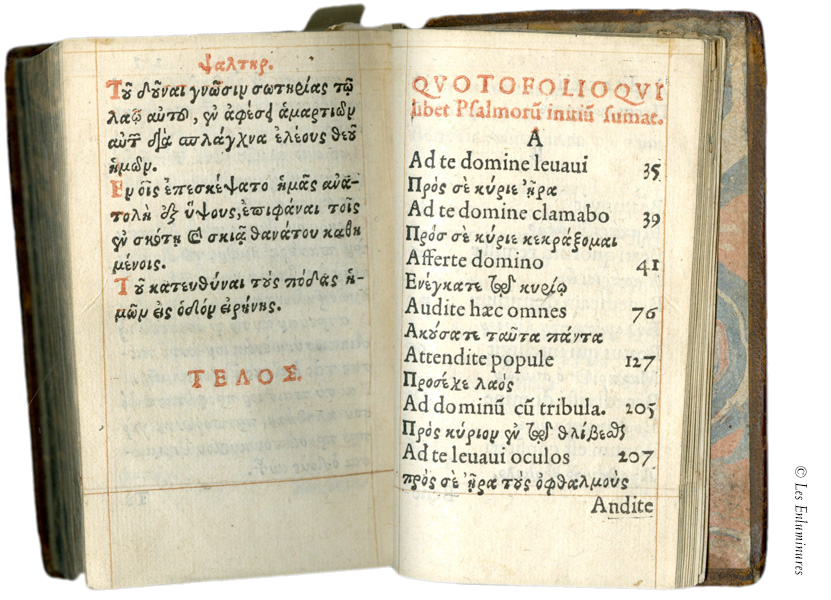 ψαλτηρ.
Τοῦ δοῦναι γνῶσιν σωτηρίας τῷ
λαῷ αὐτοῦ, ἐν ἀφέσει ἁμαρτιῶν
αὐτῶν διὰ σπλάγχνα ἐλέους θεοῦ
ἡμῶν.
Εν οἷς ἐπεσκέψατο ἡμᾶς ἀνα-
τολὴ ἐξ ὕψους, ἐπιφάναι τοῖς
ἐν σκότει καὶ σκιᾷ θανάτου καθη
μένοις.
Τοῦ κατευθύναι τοὺς πόδας ἡ-
μῶν εἰς ὁδὸν εἰρήνης.
ΤΕΛΟΣ.
QVOTOFOLIOQVI
libet Psalmorū initiū sumat.
A
Ad te domine leuaui 35
Πρὸς σὲ κύριε ᾖρα
Ad te domine clamabo 39
Πρὸσ σὲ κύριε κεκράξομαι
Afferte domino 41
Ενέγκατε τῷ κυρίῳ
Audite hæc omnes 76
Ακούσατε ταῦτα πάντα
Attendite popule 127
Προσέχε λαὸς
Ad dominū cū tribula. 205
Πρὸς κύριον ἐν τῷ θλίβεσθαι
Ad te leuaui oculos 207
πρὸς σὲ ᾖρα τοὺς ὀφθαλμοὺς
Andite
© Les Enluminures